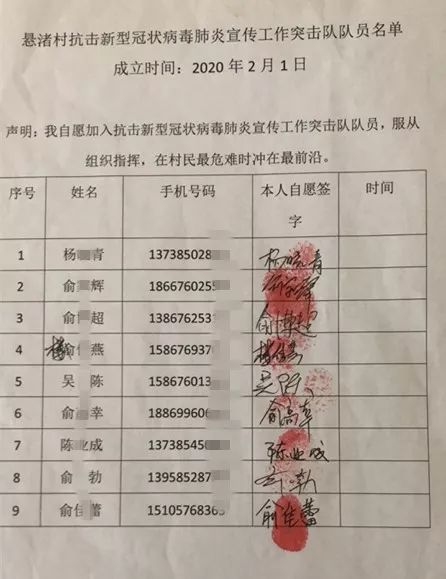 悬渚村抗击新型冠状病毒肺炎宣传工作突击队队员名单
成立时间：2020 年 2 月 1 日
声明：我自愿加入抗击新型冠状病毒肺炎宣传工作突击队队员，服从
组织指挥，在村民最危难时冲在最前沿。
序号 姓名 手机号码 本人自愿签字 时间
1 杨 青 1385028
2 俞 辉 1866760255
3 俞 超 1386762531
4 燕 1586769376
5 吴 陈 1586760133
6 俞 幸 188699606
7 陈 成 137385450
8 俞 勃 139585287
9 俞佳蕾 1510576836
俞佳蕾